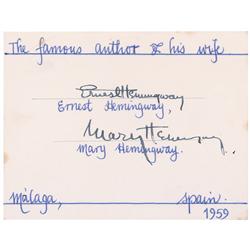 The famous author & his wife
Ernest Hemingway
Ernest Hemingway,
Mary Hemingway
Mary Hemingway.
Málaga, Spain.
1959